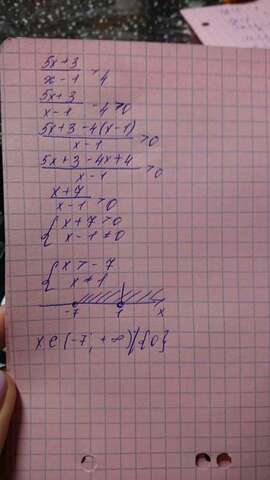 (5x+3)/(x-1) > 4
(5x+3)/(x-1) - 4 > 0
(5x+3-4(x-1))/(x-1) > 0
(5x+3-4x+4)/(x-1) > 0
(x+7)/(x-1) > 0
{ x+7>0
x-1≠0
{ x>-7
x≠1
-7 1 x
x∈(-7; +∞)/{0}